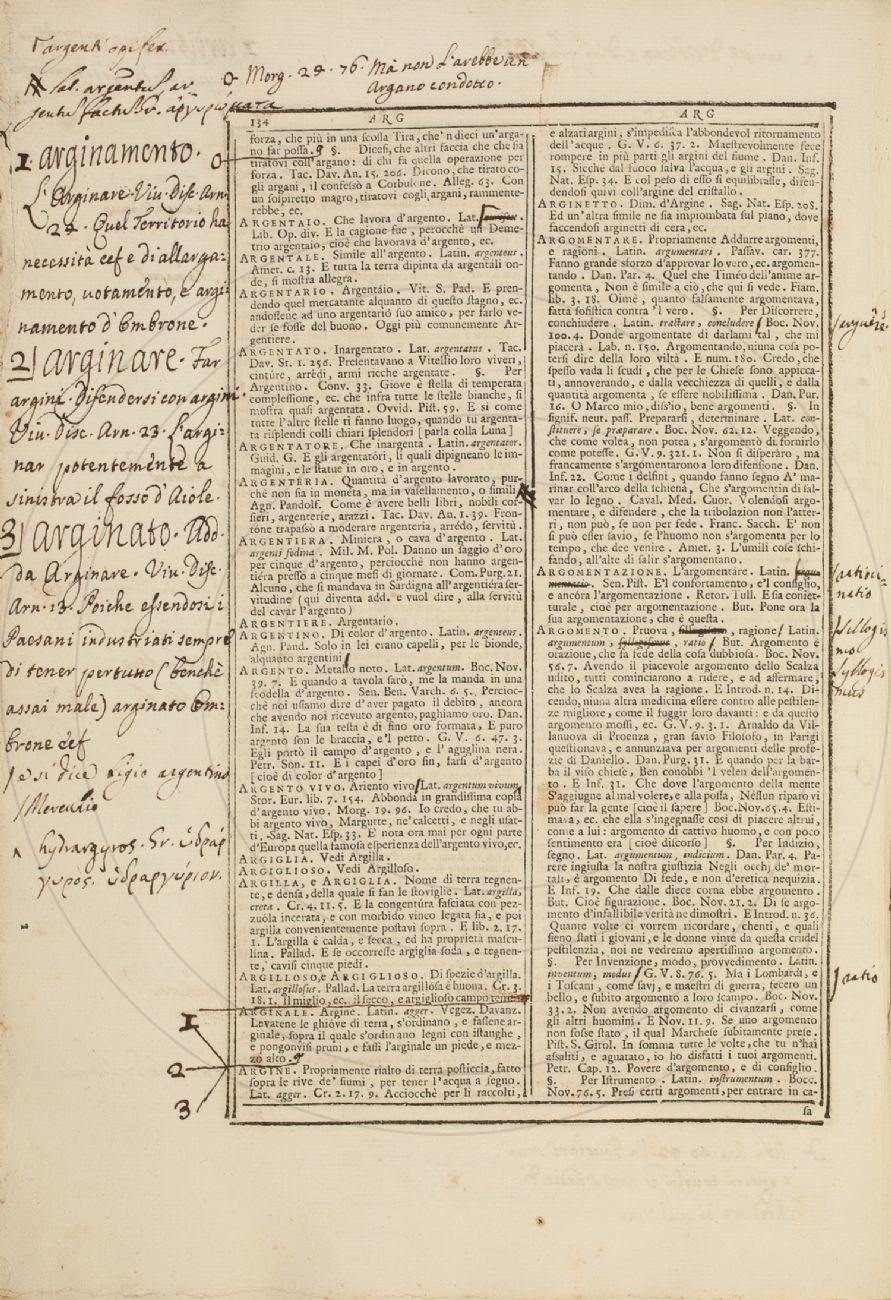 argenti opifex
Lat. argentus, ar
gentus factus Gr.
Morg. 24. 76. Mà non l'arebbe un
Argano condotto.
1. arginamento.
L'Arginare. Viu. Disc. Arn.
24. Quel Territorio ha
necessità ec e di allarga-
mento, uotamento, e argi
namento d'Ombrone.
2 arginare. Far
argini. difendersi con argini.
Viu. Disc. Arn. 23. L'argi-
nar potentemente a
sinistra il fosso d'Aiole.
3 arginato. Add.
da Arginare. Viu. Disc.
Arn. 13. Poiche essendosi i
Paesani industriati sempre
di tener pertutto (benchè
assai male) arginato Om-
brone ec
e si dice bigio argentino
hydrargyros. Gr. ὑδράρ
γυρος. ὑδραργύριον.
1
2
3
134 ARG
forza, che più in una scossa Tira, che 'n dieci un'arga-
no far possa. §. Dicesi, che altri faccia che che sia
tiratovi coll'argano: di chi fa quella operazione per
forza. Tac. Dav. An. 15. 206. Dicono, che tirato co-
gli argani, il confessò a Corbulone. Alleg. 63. Con
un sospiretto magro, tiratovi cogli argani, rammente-
rebbe, ec.
ARGENTAIO. Che lavora d'argento. Lat.
Lib. Op. div. E la cagione fue, perocchè un Deme-
trio argentaio, cioè che lavorava d'argento, ec.
ARGENTALE. Simile all'argento. Latin. argenteus.
Amet. c. 13. E tutta la terra dipinta da argentali on-
de, si mostra allegra.
ARGENTARIO. Argentáio. Vit. S. Pad. E pren-
dendo quel mercatante alquanto di questo stagno, ec.
andossene ad uno argentario suo amico, per farlo ve-
der se fosse del buono. Oggi più comunemente Ar-
gentiere.
ARGENTATO. Inargentato. Lat. argentatus. Tac.
Dav. St. 1. 256. Presentavano a Vitellio loro viveri,
cinture, arrédi, armi ricche argentate. §. Per
Argentino. Conv. 33. Giove è stella di temperata
complessione, ec. che infra tutte le stelle bianche, si
mostra quasi argentata. Ovvid. Pist. 59. E si come
tutte l'altre stelle ti fanno luogo, quando tu argenta-
ta risplendi colli chiari splendori [parla colla Luna]
ARGENTATORE. Che inargenta. Latin. argentator.
Guid. G. E gli argentatóri, li quali dipigneano le im-
magini, e le statue in oro, e in argento.
ARGENTERIA. Quantità d'argento lavorato, pur-
chè non sia in moneta, ma in vasellamento, o simili
Agn. Pandolf. Come è avere belli libri, nobili cor-
sieri, argenterie, arazzi. Tac. Dav. An. 1. 39. Fron-
tóne trapassò a moderare argenteria, arrédo, servitù.
ARGENTIERA. Miniera, o cava d'argento. Lat.
argenti fodina. Mil. M. Pol. Danno un saggio d'oro
per cinque d'argento, perciocchè non hanno argen-
tiéra presso a cinque mesi di giornate. Com. Purg. 21.
Alcuno, che si mandava in Sardigna all'argentiéra ser-
vitudine (qui diventa add. e vuol dire, alla servitù
del cavar l'argento)
ARGENTIERE. Argentario.
ARGENTINO. Di color d'argento. Latin. argenteus.
Agn. Pand. Solo in lei erano capelli, per le bionde,
alquanto argentini
ARGENTO. Metallo noto. Lat. argentum. Boc. Nov.
39. 7. E quando a tavola sarò, me la manda in una
scodella d'argento. Sen. Ben. Varch. 6. 5. Percioc-
chè noi usiamo dire d'aver pagato il debito, ancora
che avendo noi ricevuto argento, paghiamo oro. Dan.
Inf. 14. La sua testa è di fino oro formata, E puro
argento son le braccia, e 'l petto. G. V. 6. 47. 3.
Egli portò il campo d'argento, e l'aguglina nera.
Petr. Son. 11. E i capei d'oro fin, farsi d'argento
[cioè di color d'argento]
ARGENTO VIVO. Ariento vivo. Lat. argentum vivum.
Stor. Eur. lib. 7. 154. Abbonda in grandissima copia
d'argento vivo. Morg. 19. 96. Io credo, che tu ab-
bi argento vivo, Margutte, ne' calcetti, e negli usat-
ti. Sag. Nat. Esp. 33. E' nota ora mai per ogni parte
d'Europa quella famosa esperienza dell'argento vivo, ec.
ARGIGLIA. Vedi Argilla.
ARGIGLIOSO. Vedi Argilloso.
ARGILLA, e ARGIGLIA. Nome di terra tegnen-
te, e densa, della quale si fan le stoviglie. Lat. argilla,
creta. Cr. 4. 11. 5. E la congentura fasciata con pez-
zuola incerata, e con morbido vinco legata sia, e poi
argilla convenientemente postavi sopra. E lib. 2. 17.
1. L'argilla è calda, e secca, ed ha proprietà mascu-
lina. Pallad. E se occorresse argiglia soda, e tegnen-
te, cavisi cinque piedi.
ARGILLOSO, e ARGIGLIOSO. Di spezie d'argilla.
Lat. argillosus. Pallad. La terra argillosa è buona. Cr. 3.
18. 1. Il miglio, ec. il secco, e argiglioso campo teme
ARGINALE. Argine. Latin. agger. Vegez. Davanz.
Levatene le ghiove di terra, s'ordinano, e fassene ar-
ginale, sopra il quale s'ordinano legni con istanghe,
e pongonvisi pruni, e fassi l'arginale un piede, e mez-
zo alto.
ARGINE. Propriamente rialto di terra posticcia, fatto
sopra le rive de' fiumi, per tener l'acqua a segno.
Lat. agger. Cr. 2. 17. 9. Acciocchè per li raccolti,
ARG
e alzati argini, s'impedisca l'abbondevol ritornamento
dell'acque. G. V. 6. 37. 2. Maestrevolmente fece
rompere in più parti gli argini del fiume. Dan. Inf.
15. Sicchè dal fuoco salva l'acqua, e gli argini. Sag.
Nat. Esp. 34. E col peso di esso si equilibrasse, difen-
dendosi quivi coll'argine del cristallo.
ARGINETTO. Dim. d'Argine. Sag. Nat. Esp. 208.
Ed un'altra simile ne sia impiombata sul piano, dove
faccendosi arginetti di cera, ec.
ARGOMENTARE. Propriamente Addurre argomenti,
e ragioni. Latin. argumentari. Passav. car. 377.
Fanno grande sforzo d'approvar lo vero, ec. argomen-
tando. Dan. Par. 4. Quel che Timéo dell'anime ar-
gomenta, Non è simile a ciò, che qui si vede. Fiam.
lib. 3. 18. Oimè, quanto falsamente argomentava,
fatta sofistica contra 'l vero. §. Per Discorrere,
conchiudere. Latin. tractare, concludere. Boc. Nov.
100. 4. Donde argomentate di darlami tal, che mi
piacerà. Lab. n. 150. Argomentando, niuna cosa po-
tersi dire della loro viltà. E num. 180. Credo, che
spesso vada li scudi, che per le Chiese sono appicca-
ti, annoverando, e dalla vecchiezza di quelli, e dalla
quantità argomenta, se essere nobilissima. Dan. Pur.
16. O Marco mio, diss'io, bene argomenti. §. In
signif. neut. pass. Prepararsi, determinare. Lat. con-
stituere, se praparare. Boc. Nov. 62. 12. Veggendo,
che come volea, non potea, s'argomentò di fornirlo
come potesse. G. V. 9. 321. 1. Non si disperáro, ma
francamente s'argomentarono a loro difensione. Dan.
Inf. 22. Come i delfini, quando fanno segno A' ma-
rinar coll'arco della schiena, Che s'argomentin di sal-
var lo legno. Caval. Med. Cuor. Volendosi argo-
mentare, e difendere, che la tribolazion non l'atter-
ri, non può, se non per fede. Franc. Sacch. E' non
si può esser savio, se l'huomo non s'argomenta per lo
tempo, che dee venire. Amet. 3. L'umili cose schi-
fando, all'alte di salir s'argomentano.
ARGOMENTAZIONE. L'argomentare. Latin.
Sen. Pist. E 'l confortamento, e 'l consiglio,
e ancóra l'argomentazione. Retor. Tull. E sia coniet-
turale, cioè per argomentazione. But. Pone ora la
sua argumentazione, che è questa.
ARGOMENTO. Pruova, ragione. Latin.
argumentum, ratio. But. Argomento è
orazione, che fa fede della cosa dubbiosa. Boc. Nov.
56. 7. Avendo il piacevole argomento dello Scalza
udito, tutti cominciarono a ridere, e ad affermare,
che lo Scalza avea la ragione. E Introd. n. 14. Di-
cendo, niuna altra medicina essere contro alle pestilen-
ze migliore, come il fuggir loro davanti: e da questo
argomento mossi, ec. G. V. 9. 3. 1. Arnaldo da Vil-
lanuova di Proenza, gran savio Filosofo, in Parigi
questionava, e annunziava per argomenti delle profe-
zie di Daniello. Dan. Purg. 31. E quando per la bar-
ba il viso chiese, Ben conobbi 'l velen dell'argomen-
to. E Inf. 31. Che dove l'argomento della mente
S'aggiugne al mal volere, e alla possa, Néssun riparo vi
può far la gente [cioè il sapere] Boc. Nov. 65. 4. Esti-
mava, ec. che ella s'ingegnasse così di piacere altrui,
come a lui: argomento di cattivo huomo, e con poco
sentimento era [cioè discorso] §. Per Indizio,
segno. Lat. argumentum, indicium. Dan. Par. 4. Pa-
rere ingiusta la nostra giustizia Negli occhj de' mor-
tali, è argomento Di fede, e non d'eretica nequizia.
E Inf. 19. Che dalle diece corna ebbe argomento.
But. Cioè figurazione. Boc. Nov. 21. 2. Di se argo-
mento d'infallibile verità ne dimostri. E Introd. n. 36.
Quante volte ci vorrem ricordare, chenti, e quali
sieno stati i giovani, e le donne vinte da questa crudel
pestilenzia, noi ne vedremo apertissimo argomento.
§. Per Invenzione, modo, provvedimento. Latin.
inventum, modus. G. V. 8. 76. 5. Ma i Lombardi, e
i Toscani, come savj, e maestri di guerra, fecero un
bello, e subito argomento a loro scampo. Boc. Nov.
33. 2. Non avendo argomento di civanzarsi, come
gli altri huomini. E Nov. 11. 9. Se uno argomento
non fosse stato, il qual Marchese subitamente prese.
Pist. S. Girol. In somma tutte le volte, che tu n'hai
assaliti, e aguatato, io ho disfatti i tuoi argomenti.
Petr. Cap. 12. Povere d'argomento, e di consiglio.
§. Per Istrumento. Latin. instrumentum. Bocc.
Nov. 76. 5. Presi certi argomenti, per entrare in ca-
sa
arguere
ratioci-
natio
syllogis
mus
ratio